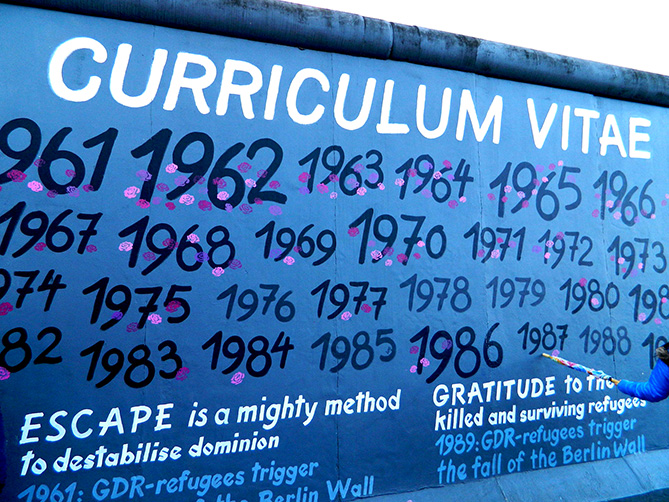 CURRICULUM VITAE
1961 1962 1963 1964 1965 1966
1967 1968 1969 1970 1971 1972 1973
1974 1975 1976 1977 1978 1979 1980
1983 1984 1985 1986 1987 1988
ESCAPE is a mighty method
to destabilise dominion
1961: GDR-refugees trigger
the Berlin Wall
GRATITUDE to the
killed and surviving refugees
1989: GDR-refugees trigger
the fall of the Berlin Wall